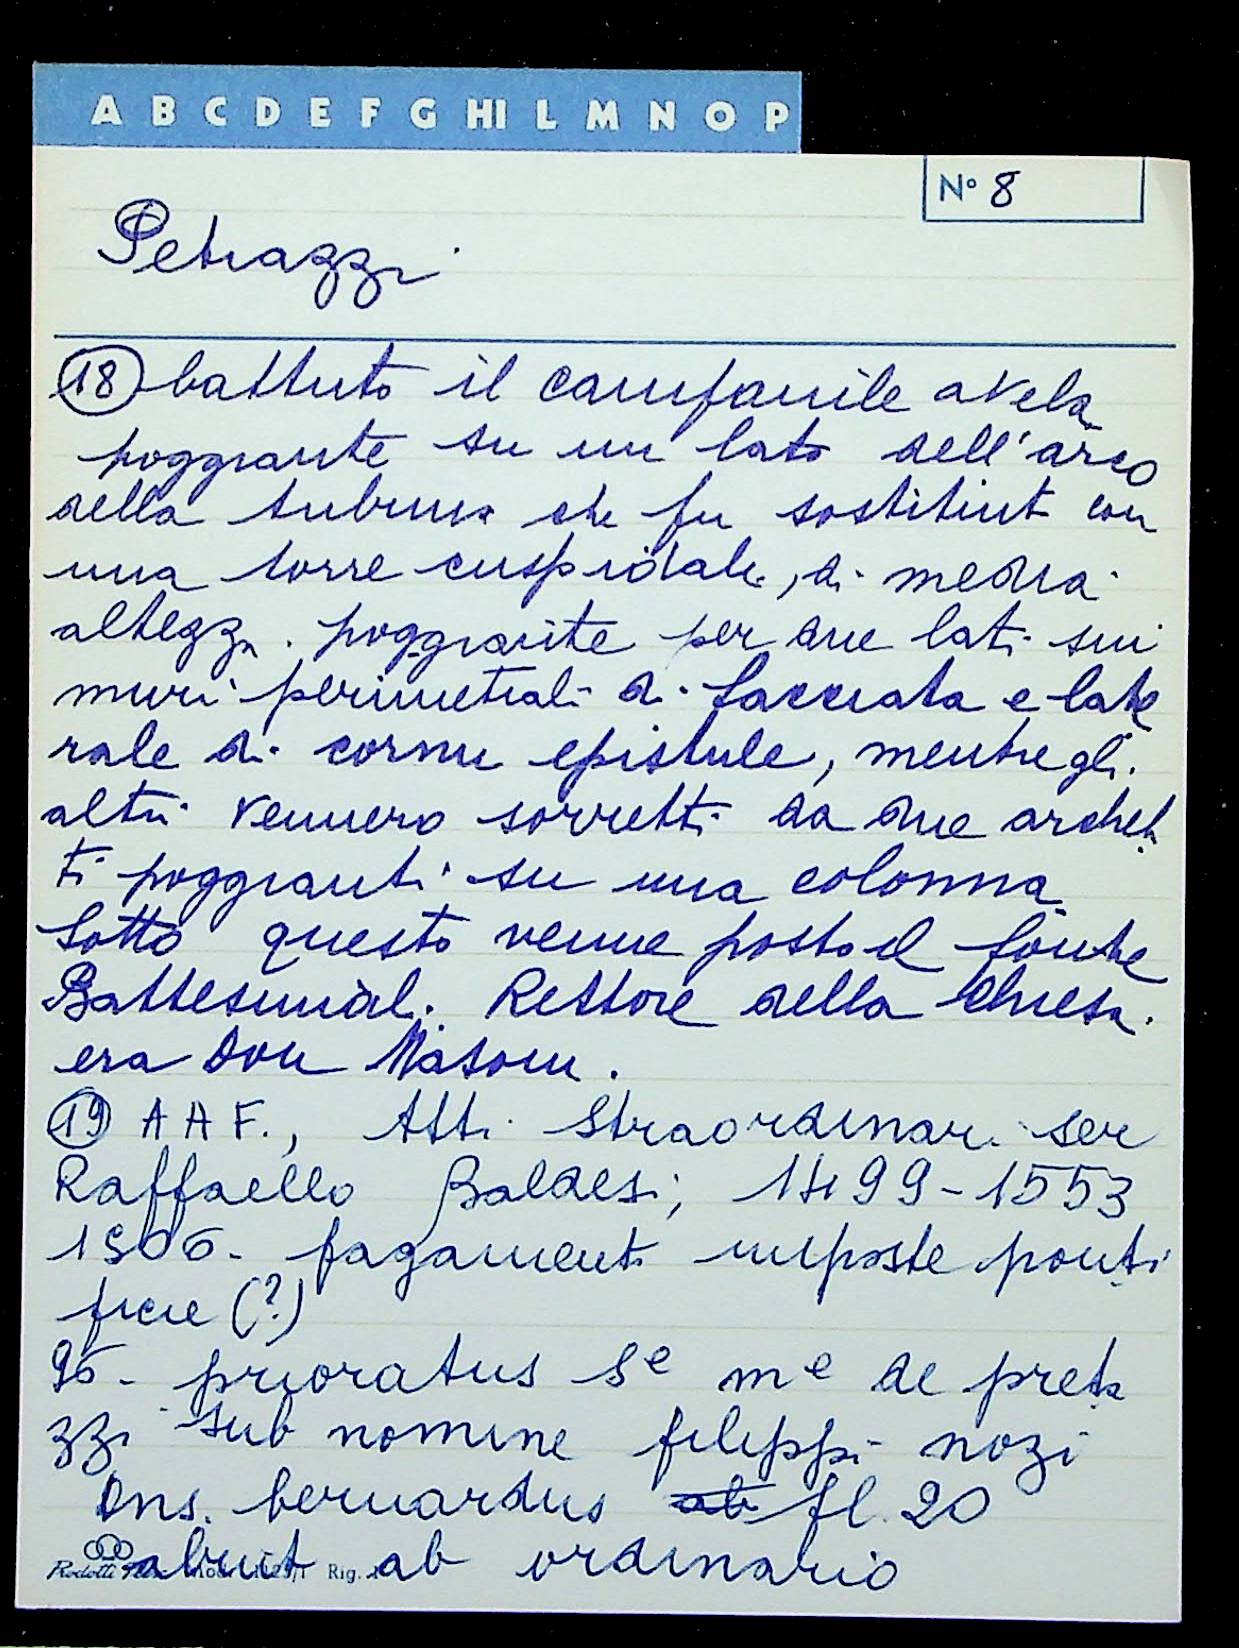 A B C D E F G HI L M N O P
Nº 8
Petrazzi
18 battuto il campanile a vela
poggiante su un lato dell'arco
della tribuna che fu sostituit con
una torre cuspidale, di media
altezza. poggiante per due lati sui
muri perimetrali di facciata e late
rale di cornu epistule, mentre gli
altri vennero sorretti da due archet
ti poggianti su una colonna.
Sotto questo venne posto il fonte
Battesimal. Rettore della Chiesa.
era Don Masoni.
19 A A F., Atti Straordinari ser
Raffaello Baldesi; 1499-1553
1506- pagamenti imposte ponti
ficie (?)
95- prioratus Se me de preta
zzi sub nomine filippi nozi
Dns. bernardus ab fl. 20
abuit ab ordinario
Rig.